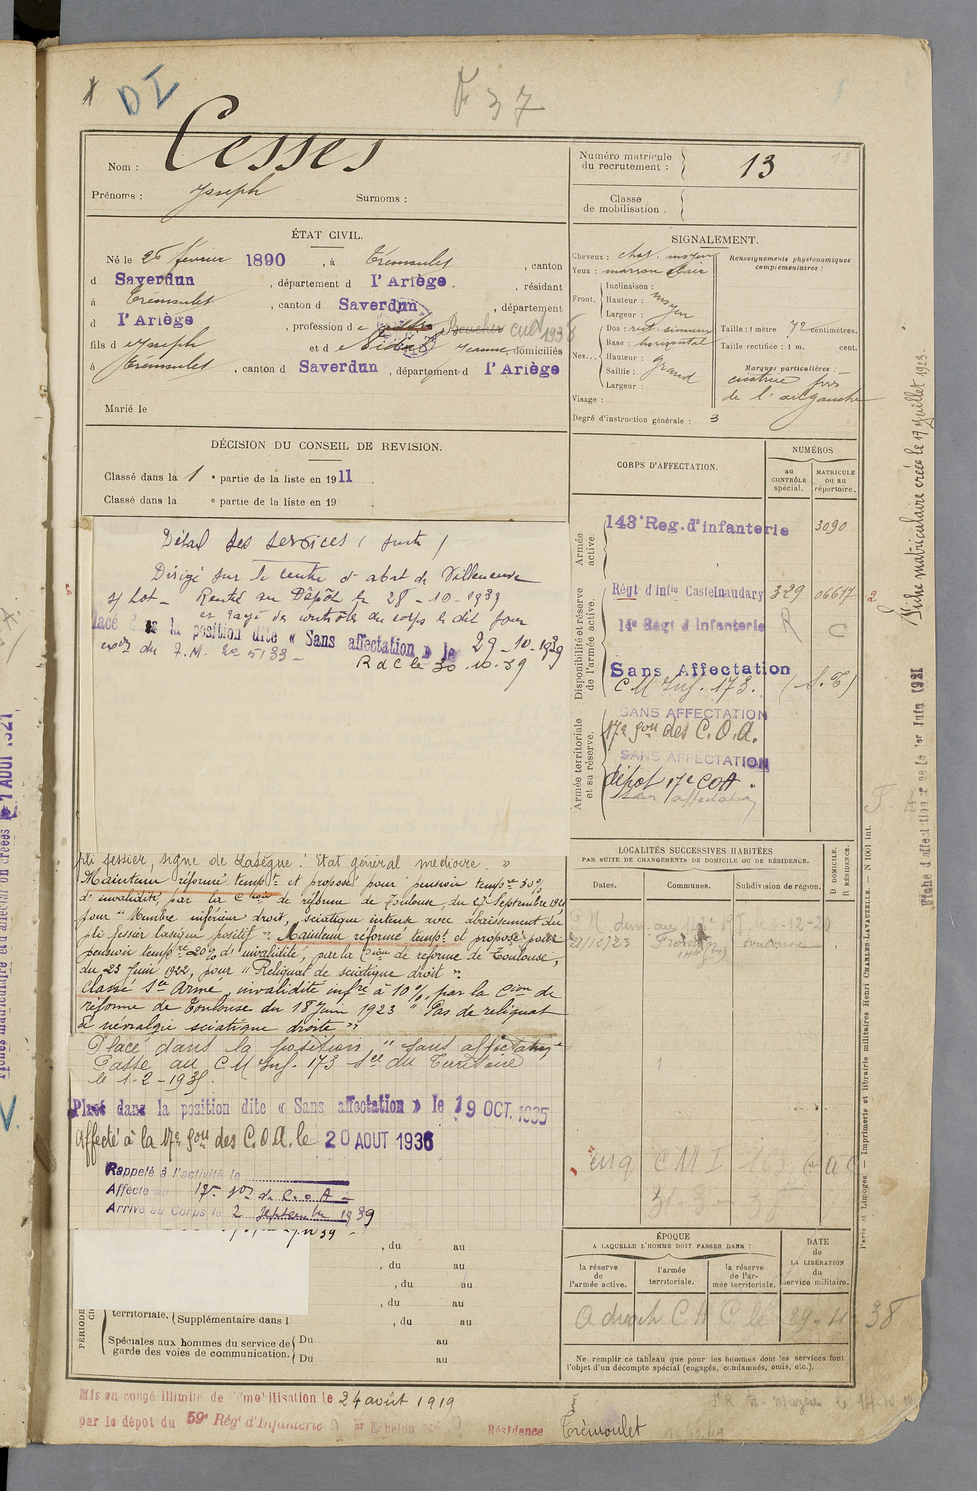 DI
F 37
Nom : Cesses
Prénoms : Joseph Surnoms :
Numéro matricule du recrutement : 13
13
Classe de mobilisation .
ÉTAT CIVIL.
Né le 26 février 1890 , à Trémoulet , canton
d Saverdun , département d l'Ariège . , résidant
à Trémoulet , canton d Saverdun , département
d l'Ariège , profession de Boucher
fils d e Joseph et d e Jeanne, domiciliés
à Trémoulet , canton d Saverdun , département d l'Ariège
Marié le
SIGNALEMENT.
Cheveux : chat. moyen
Yeux : marron clair
Front. Inclinaison :
Hauteur : moyen
Largeur :
Nez Dos : rect. sinueux
Base : horizontal
Hauteur : grand
Saillie :
Largeur :
Visage :
Degré d'instruction générale : 3
Renseignements physionomiques complémentaires :
Taille : 1 mètre 72 centimètres.
Taille rectifiée : 1 m. cent.
Marques particulières :
cicatrice près
de l'œil gauche
DÉCISION DU CONSEIL DE REVISION.
Classé dans la 1 e partie de la liste en 1911 .
Classé dans la e partie de la liste en 19
CORPS D'AFFECTATION.
NUMÉROS
au CONTRÔLE spécial.
MATRICULE ou au répertoire.
Armée active.
143e Reg. d'infanterie 3090
Disponibilité et réserve de l'armée active.
Régt d'infie Castelnaudary 329 06617
14e Régt d'Infanterie R C
Sans Affectation
C M Inf. 173. (S.T)
Armée territoriale et sa réserve.
SANS AFFECTATION
17e son des C.O.A.
SANS AFFECTATION
dépôt 17e COA
Sans affectation
Détail des services (suite)
Dirigé sur le centre d'abat de Villeneuve
s/ Lot - Rentré au Dépôt le 28-10-1939
et rayé des contrôles du corps le dit jour
placé dans la position dite « Sans affectation » le 29-10-1939
R d C le 30 10.39
pli fessier, signe de Lasègue. Etat général médiocre. »
Maintenu réformé tempt et proposé pour pension tempre 30%
d'invalidité, par la Cion de réforme de Toulouse, du 27 Septembre 1921
pour "Membre inférieur droit, sciatique intense avec abaissement du
pli fessier lasègue positif". Maintenu réformé tempt et proposé pour
pension tempre 20% d'invalidité, par la Cion de réforme de Toulouse,
du 23 Juin 1922, pour "Reliquat de sciatique droit".
Classé Sce Armé, invalidité infre à 10%, par la Cion de
réforme de Toulouse du 18 Juin 1923 "Pas de reliquat
de névralgie sciatique droite".
Placé dans la position "sans affectation"
Passé au C M Inf. 173 Sce du Territoire
le 1-2-193
Placé dans la position dite « Sans affectation » le 19 OCT. 1935
Affecté à la 17e son des C.O.A. le 20 AOUT 1936
Rappelé à l'activité le
Affecté au 17e son de C.O.A -
Arrivé au Corps le 2 Septembre 1939
, du au
, du au
, du au
territoriale. Supplémentaire dans l , du au
Spéciales aux hommes du service de garde des voies de communication. Du au
Du au
LOCALITÉS SUCCESSIVES HABITÉES
PAR SUITE DE CHANGEMENTS DE DOMICILE OU DE RÉSIDENCE.
Dates. Communes. Subdivision de région.
D. DOMICILE. R. RÉSIDENCE.
21/12/23 Toulouse
ÉPOQUE
A LAQUELLE L'HOMME DOIT PASSER DANS :
la réserve de l'armée active.
l'armée territoriale.
la réserve de l'armée territoriale.
DATE de LA LIBÉRATION du service militaire.
A droit C A C le 29-11-38
Ne remplir ce tableau que pour les hommes dont les services font l'objet d'un décompte spécial (engagés, condamnés, omis, etc.).
Mis en congé illimité de démobilisation le 24 août 1919
par le dépôt du 59e Régt d'Infanterie Echelon Résidence Trémoulet
Fiche matriculaire créée le 19 juillet 1923.
Fiche d'affectation créée le 1er Juin 1921
Paris et Limoges. — Imprimerie et librairie militaires Henri CHARLES-LAVAUZELLE.